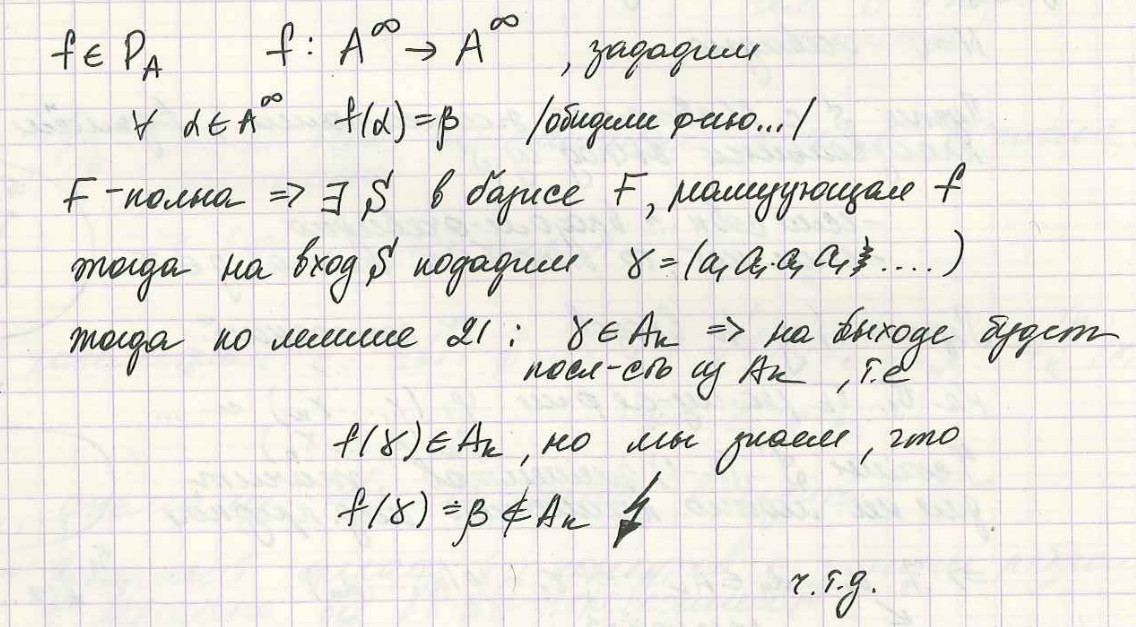 f ∈ P_A f : A^∞ → A^∞ , зададим
∀ α ∈ A^∞ f(α) = β /обидим ф-ию.../
F - полна => ∃ S в базисе F, реализующая f
тогда на вход S подадим γ = (a₁ a₁ a₁ a₁ ....)
тогда по лемме 21 : γ ∈ Aₖ => на выходе будет
посл-сть из Aₖ , т.е
f(γ) ∈ Aₖ , но мы знаем, что
f(γ) = β ∉ Aₖ
ч.т.д.